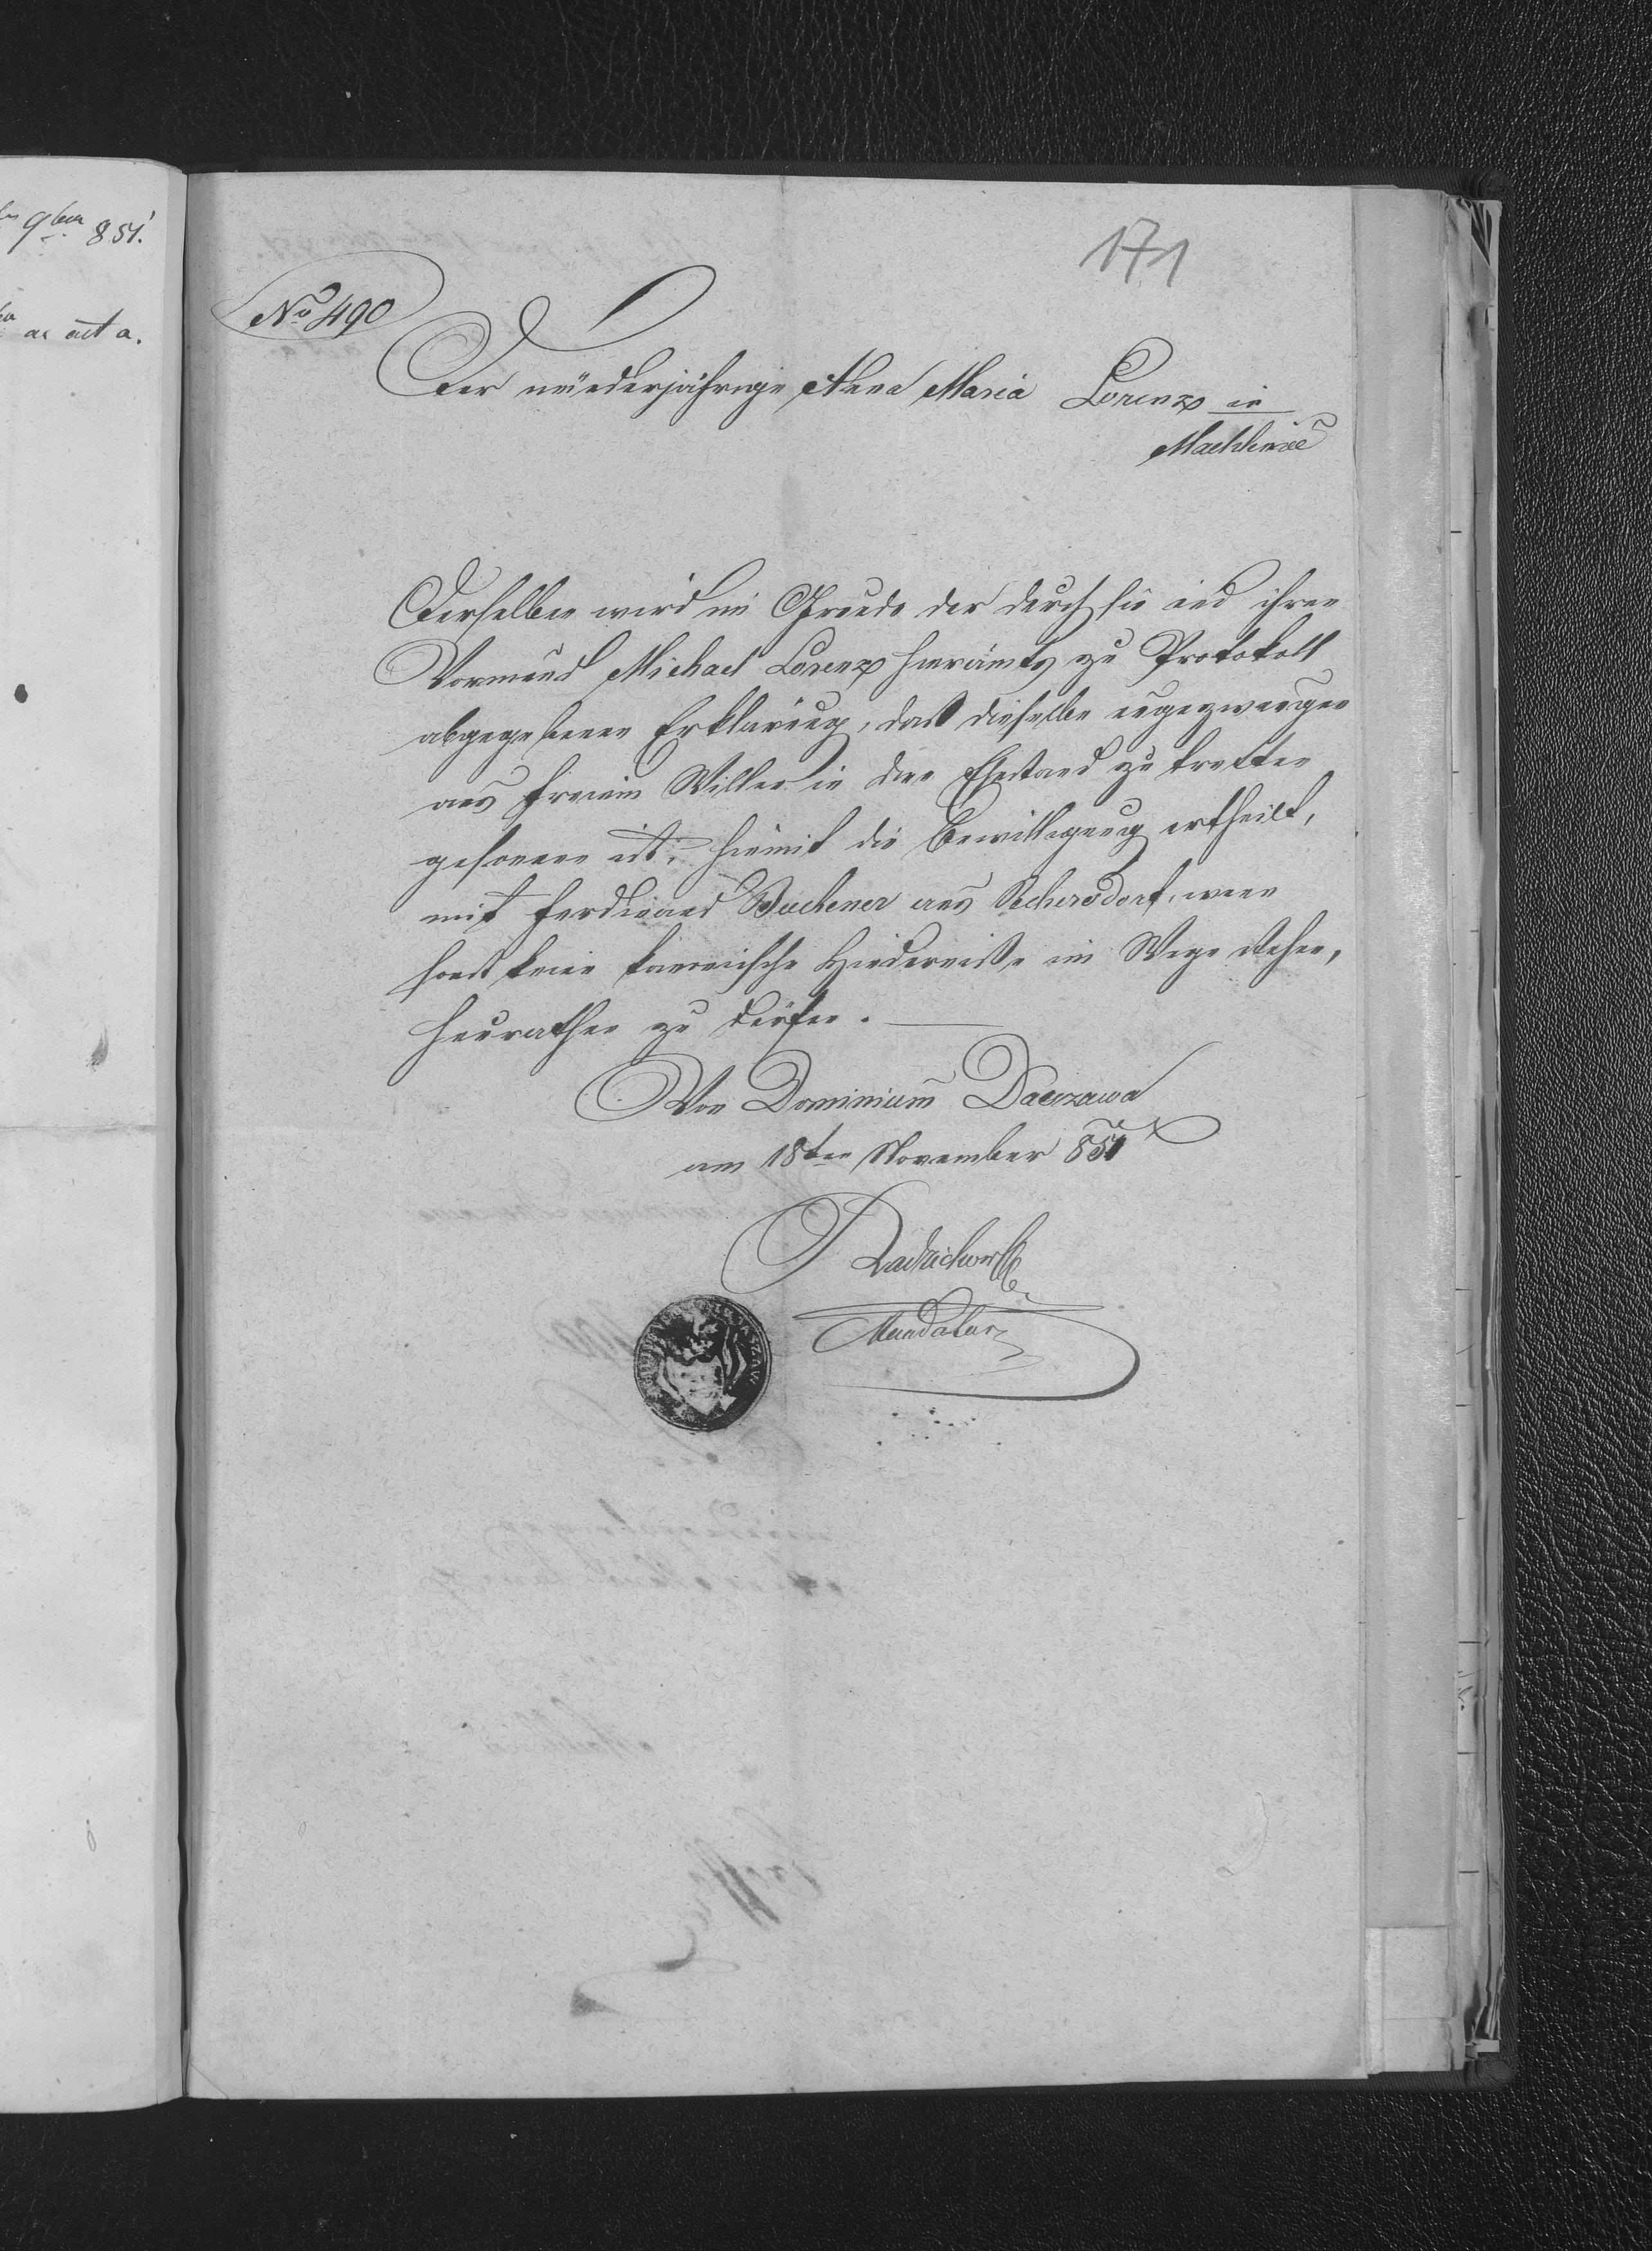 171
No 490
Der minderjährige Anna Maria Lorenz in
Machliniec
Derselben wird im Grunde der durch sie und ihren
Vormund Michael Lorenz hieramts zu Protokoll
abgegebenen Erklärung, daß dieselbe ungezwungen
aus freiem Willen in den Ehestand zu tretten
gesonnen ist, hiemit die Bewilligung ertheilt,
mit Ferdinand Buchener aus Rehersdorf, wenn
sonst keine kanonische Hinderniße im Wege stehen,
heurathen zu dürfen.
Von Dominium Daszawa
am 18ten November 851
Mandatar
9ber 851.
ad acta.